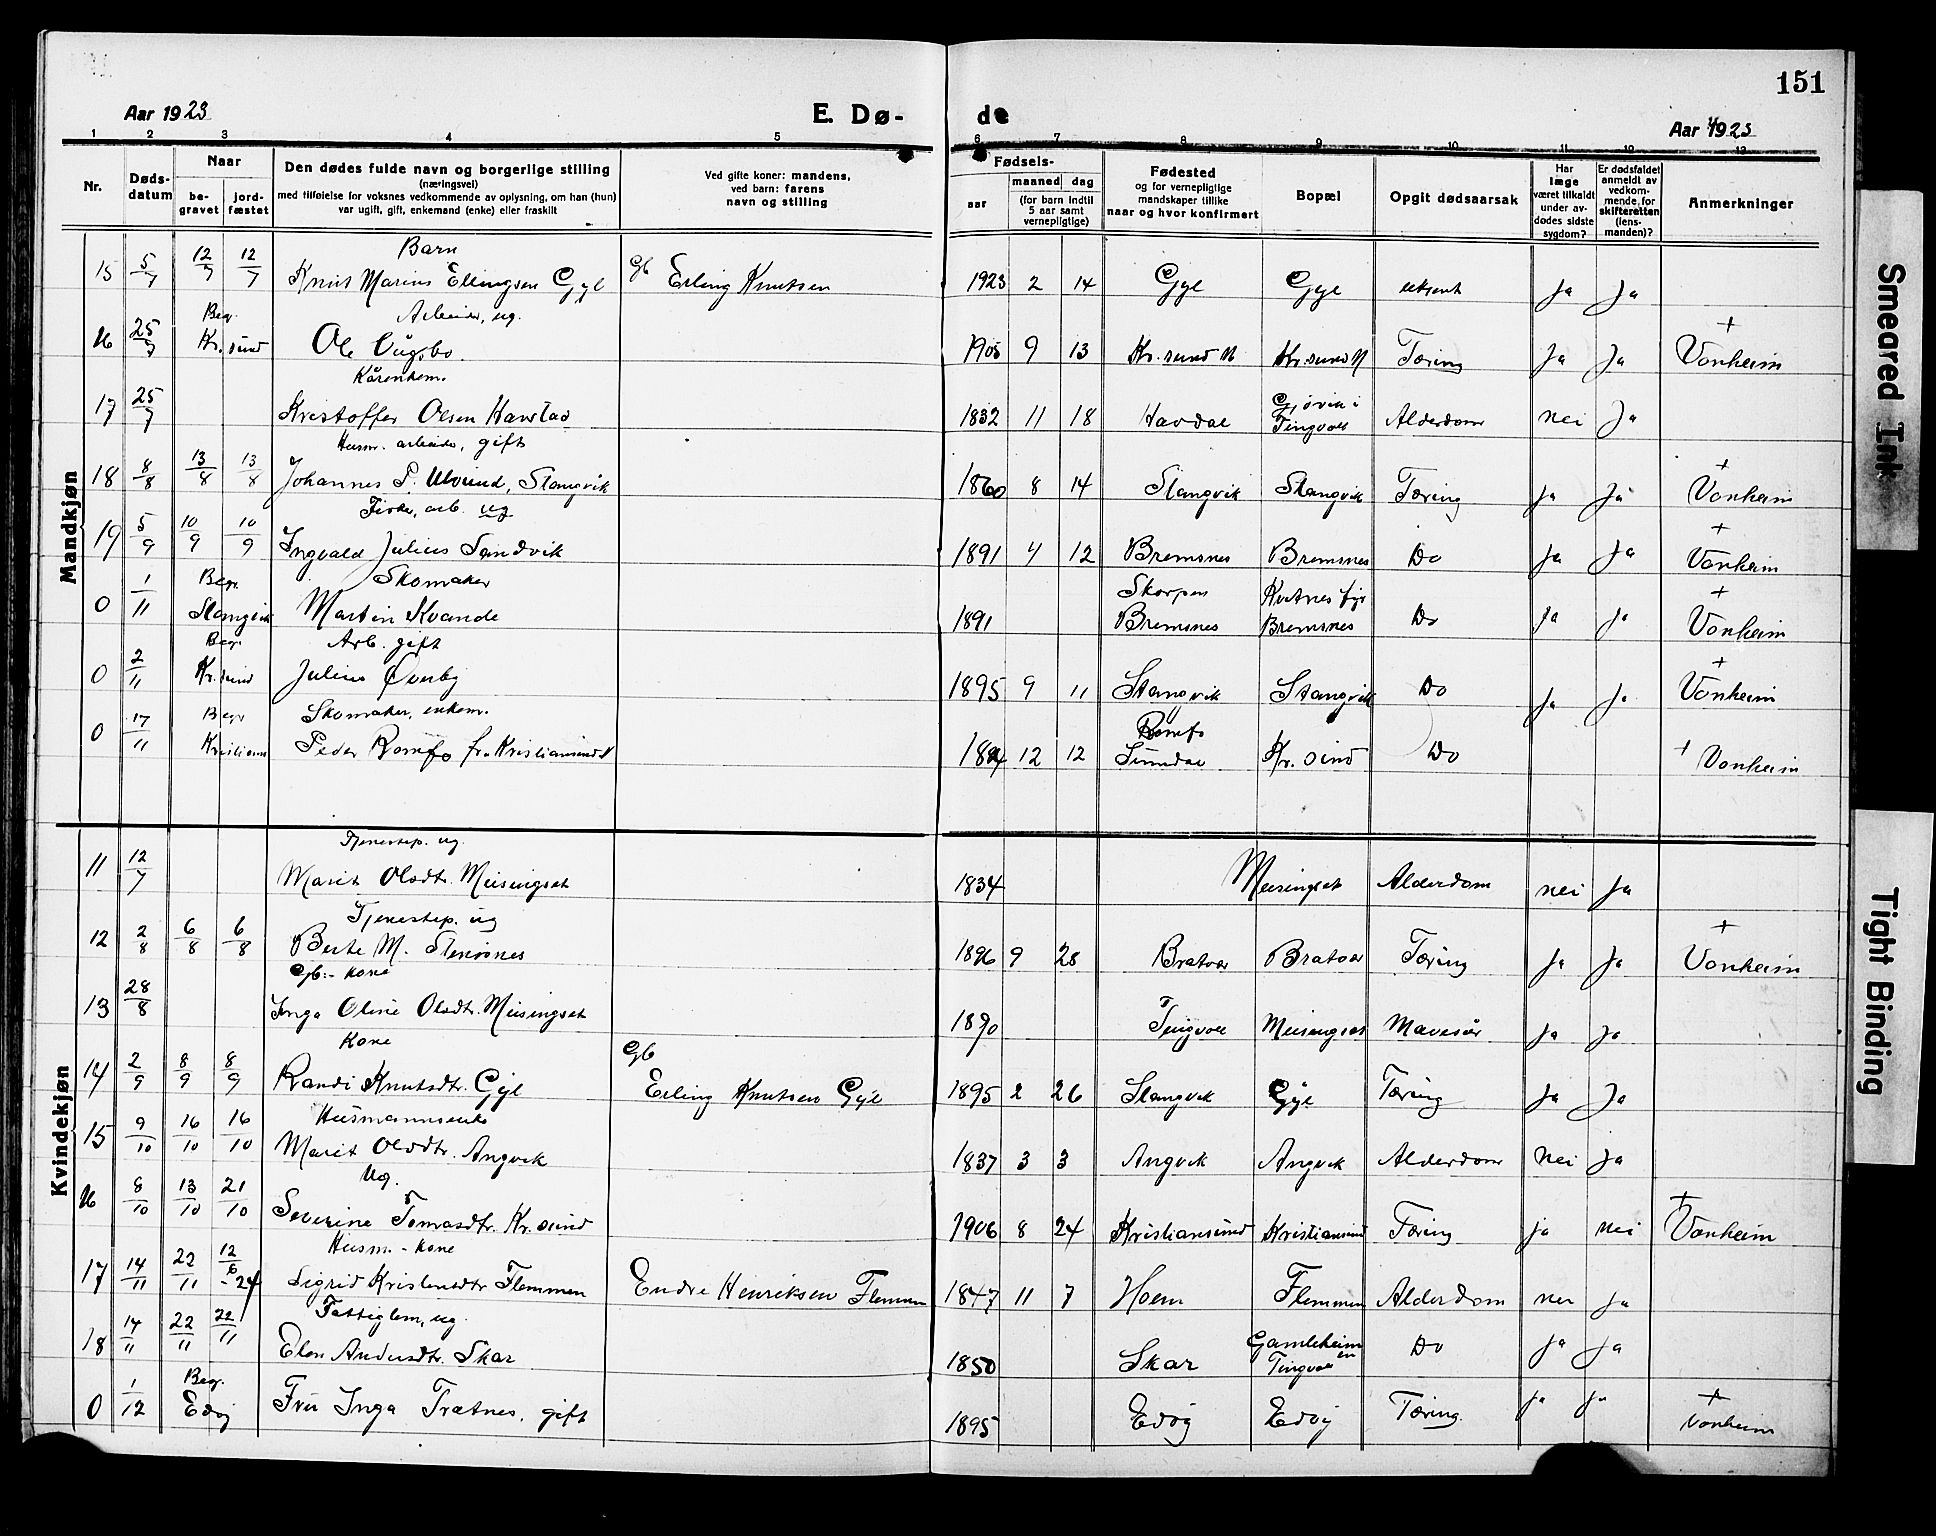 151
Aar 1923 E. Dø- de Aar 1923
1 2 3 4 5 6 7 8 9 10 11 12 13
Nr. Døds-datum Naar be-gravet jord-fæstet Den dødes fulde navn og borgerlige stilling (næringsvei) med tilføielse for voksnes vedkommende av oplysning, om han (hun) var ugift, gift, enkemand (enke) eller fraskilt Ved gifte koner: mandens, ved barn: farens navn og stilling Fødsels- aar maaned dag (for barn indtil 5 aar samt vernepligtige) Fødested og for vernepligtige mandskaper tillike naar og hvor konfirmert Bopæl Opgit dødsaarsak Har læge været tilkaldt under av-dødes sidste sygdom? Er dødsfaldet anmeldt av vedkom-mende, for skifteretten (lens-manden)? Anmerkninger
Mandkjøn
Barn
15 5/7 12/7 12/7 Knut Marius Ellingsen Gyl Gb Erling Knutsen 1923 2 14 Gyl Gyl ukjent Ja Ja
Begr. Arbeider, ug.
16 25/7 Kr.sund Ole Vågsbo 1905 9 13 Kr.sund N Kr.sund N Tæring Ja Ja + Vonheim
Kårenkem.
17 25/7 Kristoffer Olsen Hanstad 1832 11 18 Havdal Gjøvik i Tingvoll Alderdom nei Ja
Husm. arbeider, gift
18 8/8 13/8 13/8 Johannes P. Ulvund, Stangvik 1860 8 14 Stangvik Stangvik Tæring Ja Ja + Vonheim
Fisker, arb. ug
19 5/9 10/9 10/9 Ingvald Julius Sandvik 1891 4 12 Bremsnes Bremsnes Do Ja Ja + Vonheim
Begr. Skomaker
0 1/11 Stangvik Martin Kvande 1891 Skorpen Bremsnes Kvitnes fyr Bremsnes Do Ja Ja + Vonheim
Begr Arb. gift
0 2/11 Kr.sund Julius Øverby 1895 9 11 Stangvik Stangvik Do Ja Ja + Vonheim
Begr Skomaker, enkem.
0 17/11 Kristians Peder Romfo fra Kristiansund N 12 12 Romfo Sunndal Kr.sund Do + Vonheim
Kvindekjøn
Tjenestep. ug.
11 12/7 Marit Olsdtr. Meisingset 1834 Meisingset Alderdom nei Ja
Tjenestep. ug
12 2/8 6/8 6/8 Berte M. Stensønes 1896 9 28 Bratvær Bratvær Tæring Ja Ja + Vonheim
Gb.- kone
13 28/8 Inga Oline Olsdtr. Meisingset 1890 Tingvoll Meisingset Mavesår Ja Ja
Kone
14 2/9 8/9 8/9 Randi Knutsdtr. Gyl Gb Erling Knutsen Gyl 1895 2 26 Stangvik Gyl Tæring Ja Ja
Husmannsenke
15 9/10 16/10 16/10 Marit Olsdtr. Angvik 1837 3 3 Angvik Angvik Alderdom Nei Ja
Ug.
16 8/10 13/10 21/10 Severine Tomasdtr. Kr.sund 1906 8 24 Kristiansund Kristiansund Tæring ja nei + Vonheim
Husm. - kone
17 14/11 22/11 12/6 - 24 Sigrid Kristensdtr Flemmen Endre Henriksen Flemmen 1847 11 7 Hoem Flemmen Alderdom nei Ja
Fattiglem, ug.
18 14/11 22/11 22/11 Elen Andersdtr. Skar 1850 Skar Gamleheimen Tingvoll Do Ja Ja
Begr.
0 1/12 Edøy Fru Inga Trætnes, gift 1895 Edøy Edøy Tæring Ja Ja + Vonheim
Smeared Ink
Tight Binding